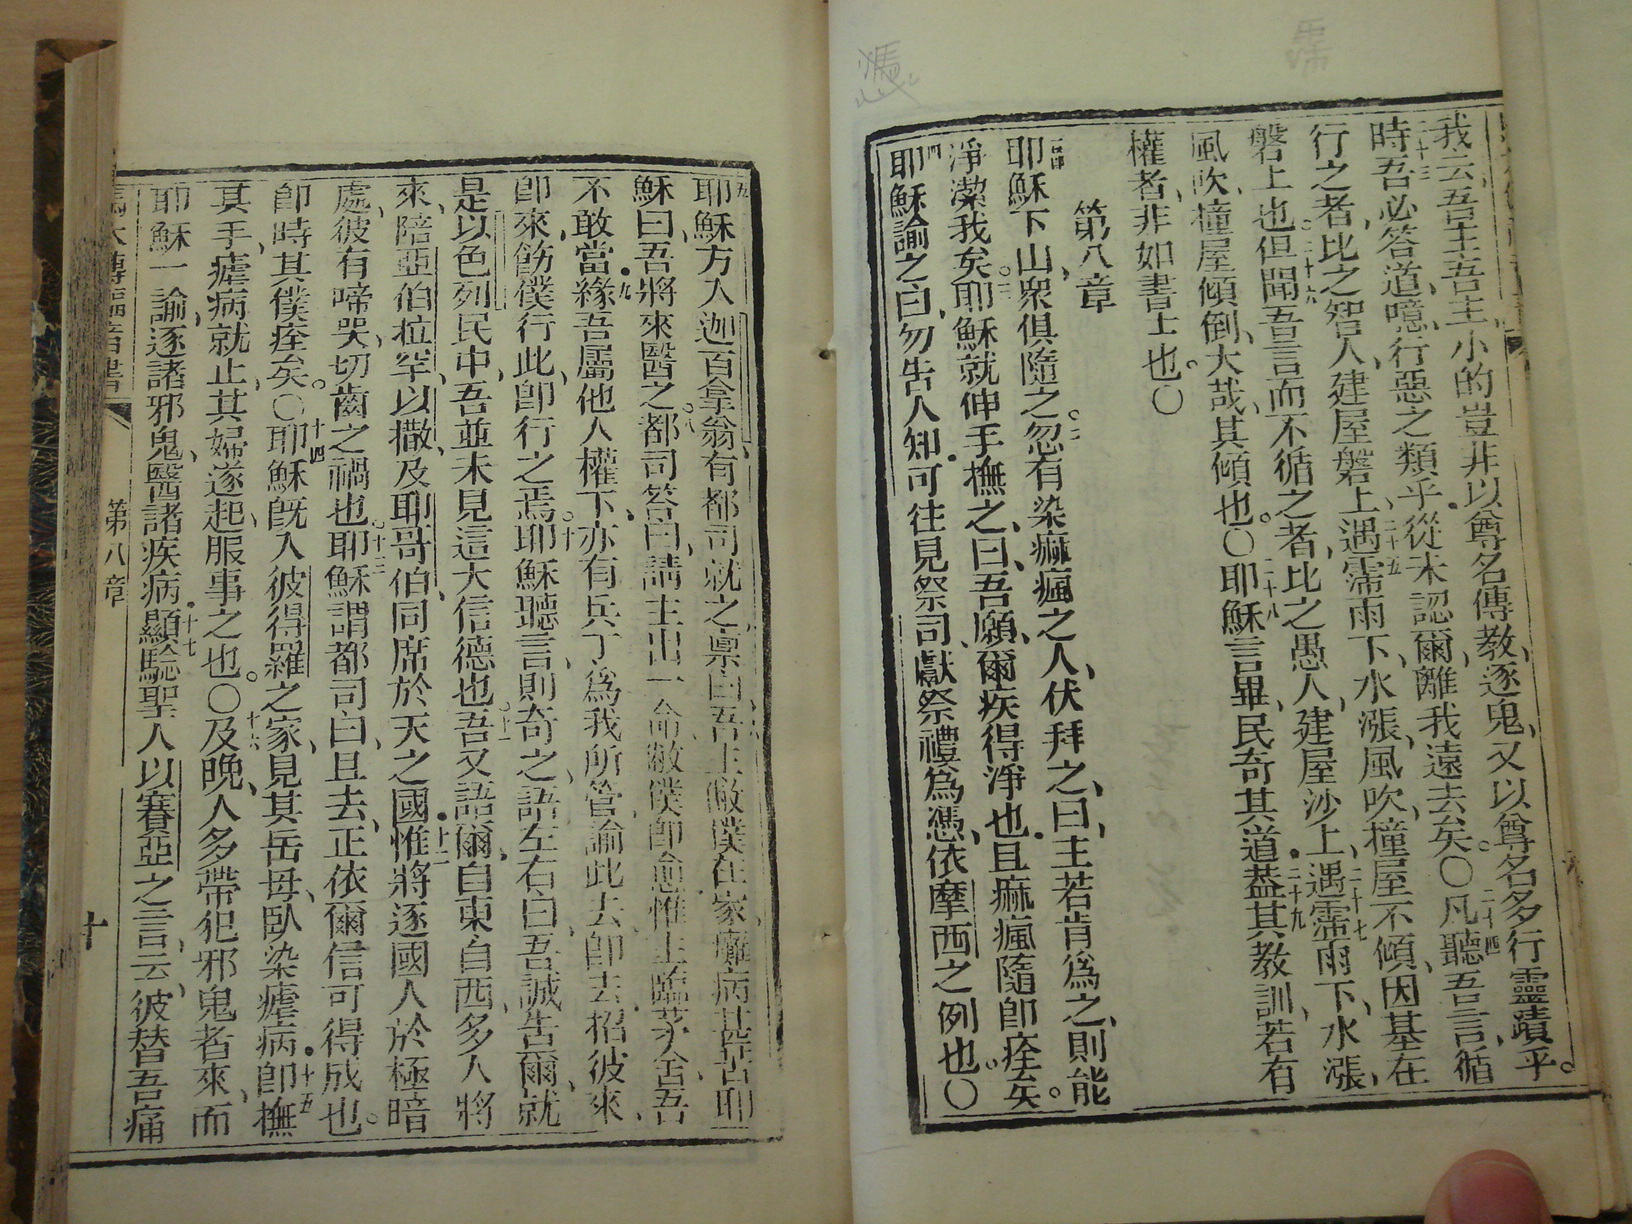 我云吾主吾主小的豈非以尊名傳教逐鬼又以尊名多行靈蹟乎。
時吾必答道噫行惡之類乎從未認爾離我遠去矣。〇二十四凡聽吾言循
行之者比之智人建屋磐上二十五遇霈雨下水漲風吹撞屋不傾因基在
磐上也二十六但聞吾言而不循之者比之愚人建屋沙上二十七遇霈雨下水漲
風吹撞屋傾倒大哉其傾也。〇二十八耶穌言畢民奇其道二十九葢其教訓若有
權者非如書士也。〇
第八章
耶穌下山衆俱隨之。二忽有染痲瘋之人伏拜之曰主若肯爲之則能
淨潔我矣。三耶穌就伸手撫之曰吾願爾疾得淨也且痲瘋隨卽痊矣。
四耶穌諭之曰勿告人知可往見祭司獻祭禮爲憑依摩西之例也。〇
五耶穌方入迦百拿翁有都司就之六禀曰吾主敝僕在家癱病甚苦七耶
穌曰吾將來醫之。八都司答曰請主出一命敝僕卽愈惟主臨茅舍吾
不敢當九緣吾屬他人權下亦有兵丁爲我所管諭此去卽去招彼來
卽來飭僕行此卽行之焉。十耶穌聽言則奇之語左右曰吾誠告爾就
是以色列民中吾並未見這大信德也。十一吾又語爾自東自西多人將
來陪亞伯拉罕以撒及耶哥伯同席於天之國十二惟將逐國人於極暗
處彼有啼哭切齒之禍也。十三耶穌謂都司曰且去正依爾信可得成也。
卽時其僕痊矣。〇十四耶穌旣入彼得羅之家見其岳母臥染瘧病十五卽撫
其手瘧病就止其婦遂起服事之也。〇十六及晚人多帶犯邪鬼者來而
耶穌一諭逐諸邪鬼醫諸疾病十七顯驗聖人以賽亞之言云彼替吾痛
馬太傳福音書 第八章 十
憑
霈